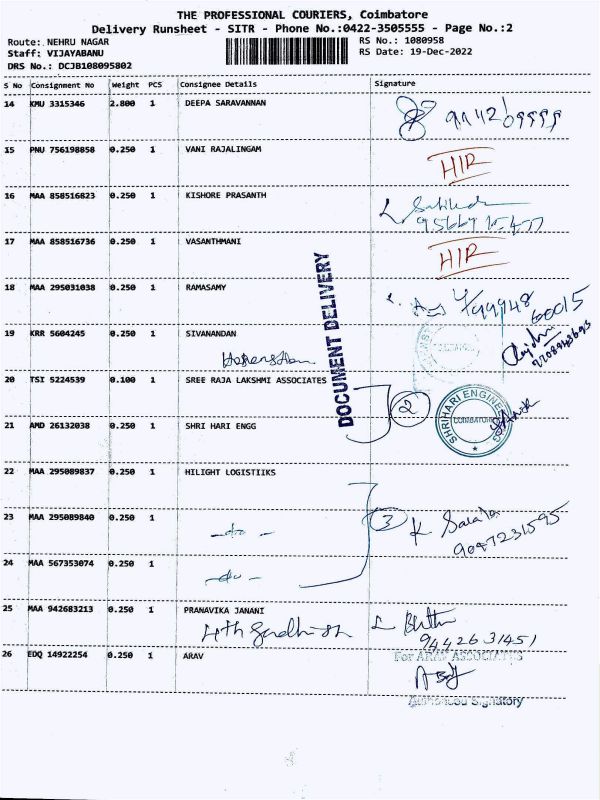 THE PROFESSIONAL COURIERS, Coimbatore
Delivery Runsheet - SITR - Phone No.:0422-3505555 - Page No.:2
Route: NEHRU NAGAR
Staff: VIJAYABANU
DRS No.: DCJB108095802
RS No.: 1080958
RS Date: 19-Dec-2022
S No Consignment No Weight PCS Consignee Details Signature
14 KMU 3315346 2.800 1 DEEPA SARAVANNAN
15 PNU 756198858 0.250 1 VANI RAJALINGAM HIR
16 MAA 858516823 0.250 1 KISHORE PRASANTH
17 MAA 858516736 0.250 1 VASANTHMANI HIR
18 MAA 295031038 0.250 1 RAMASAMY
19 KRR 5604245 0.250 1 SIVANANDAN
DOCUMENT DELIVERY
20 TSI 5224539 0.100 1 SREE RAJA LAKSHMI ASSOCIATES 2
SHRIHARI ENGINEERING
COIMBATORE
21 AMD 26132038 0.250 1 SHRI HARI ENGG
22 MAA 295089837 0.250 1 HILIGHT LOGISTIIKS
23 MAA 295089840 0.250 1 -do- 3 K Sarala
9047231595
24 MAA 567353074 0.250 1 -do-
25 MAA 942683213 0.250 1 PRANAVIKA JANANI
9442631451
26 EDQ 14922254 0.250 1 ARAV For ARAV ASSOCIATES
Authorised Signatory